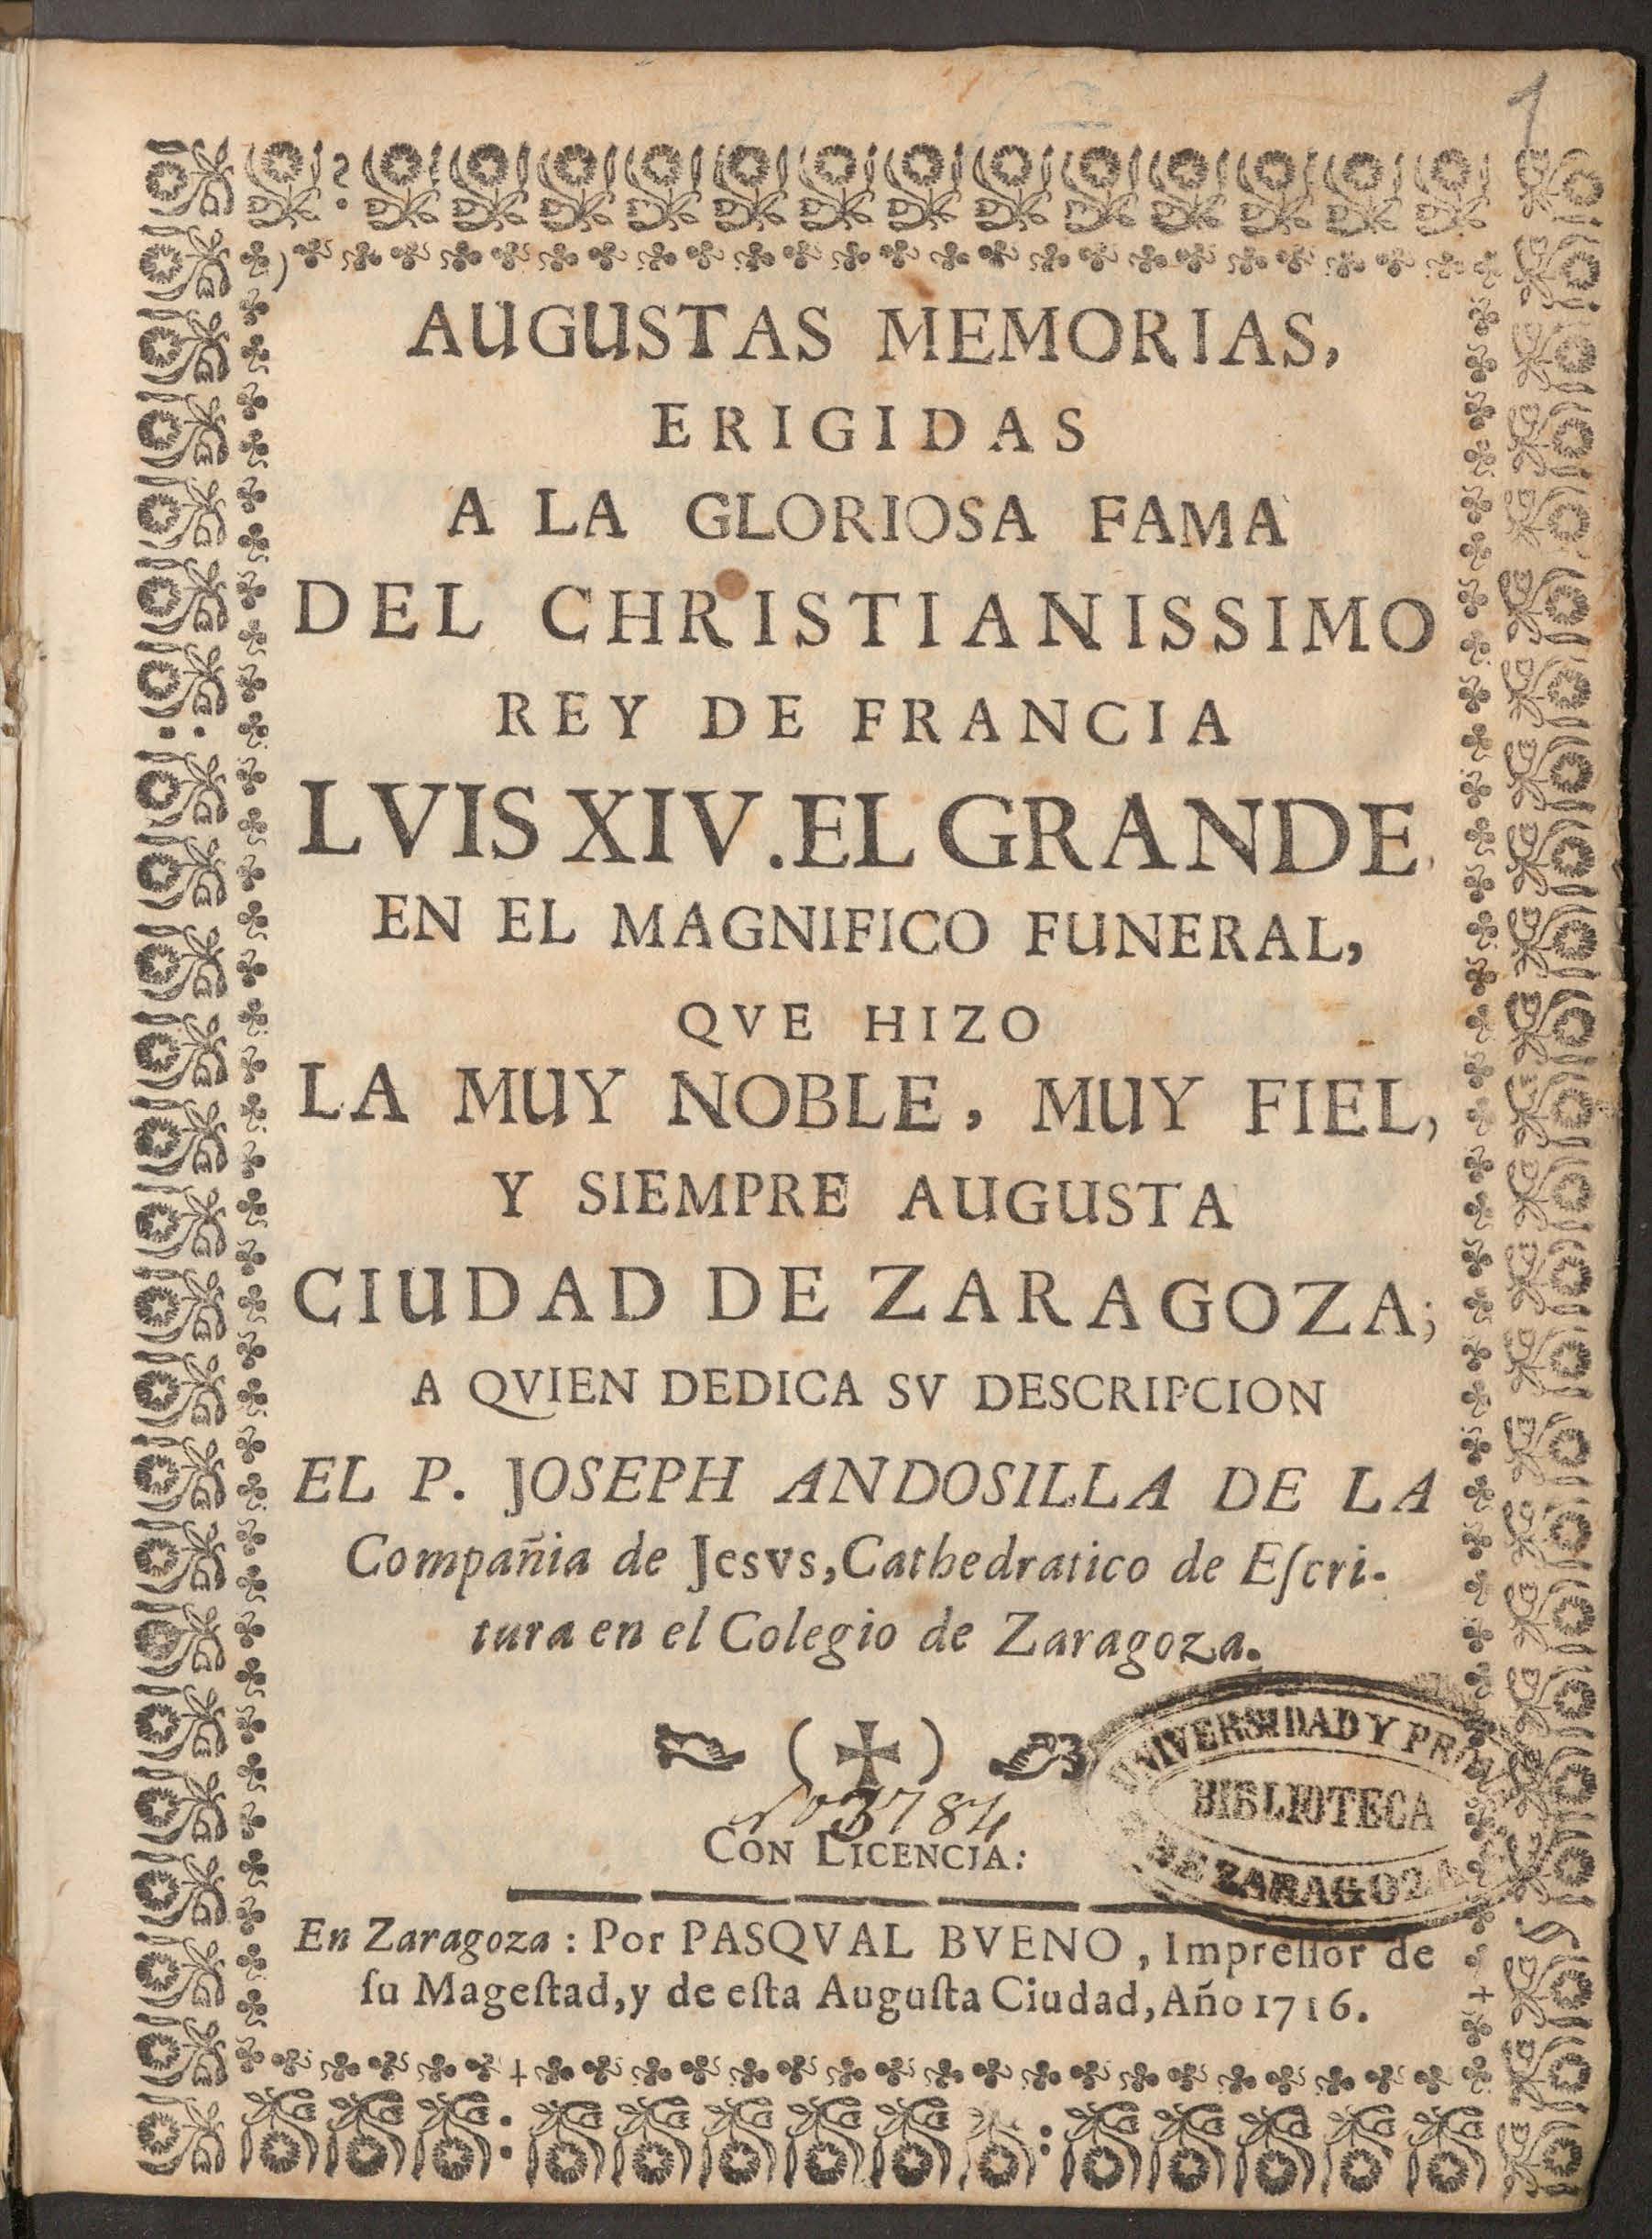 1
AUGUSTAS MEMORIAS,
ERIGIDAS
A LA GLORIOSA FAMA
DEL CHRISTIANISSIMO
REY DE FRANCIA
LVIS XIV. EL GRANDE,
EN EL MAGNIFICO FUNERAL,
QVE HIZO
LA MUY NOBLE, MUY FIEL,
Y SIEMPRE AUGUSTA
CIUDAD DE ZARAGOZA;
A QVIEN DEDICA SV DESCRIPCION
EL P. JOSEPH ANDOSILLA DE LA
Compañia de Jesvs, Cathedratico de Eſcri-
tura en el Colegio de Zaragoza.
(✠)
Nº 3784
UNIVERSIDAD Y
BIBLIOTECA
DE ZARAGOZA
CON LICENCIA:
En Zaragoza: Por PASQVAL BVENO, Impreſſor de
ſu Mageſtad, y de eſta Auguſta Ciudad, Año 1716.